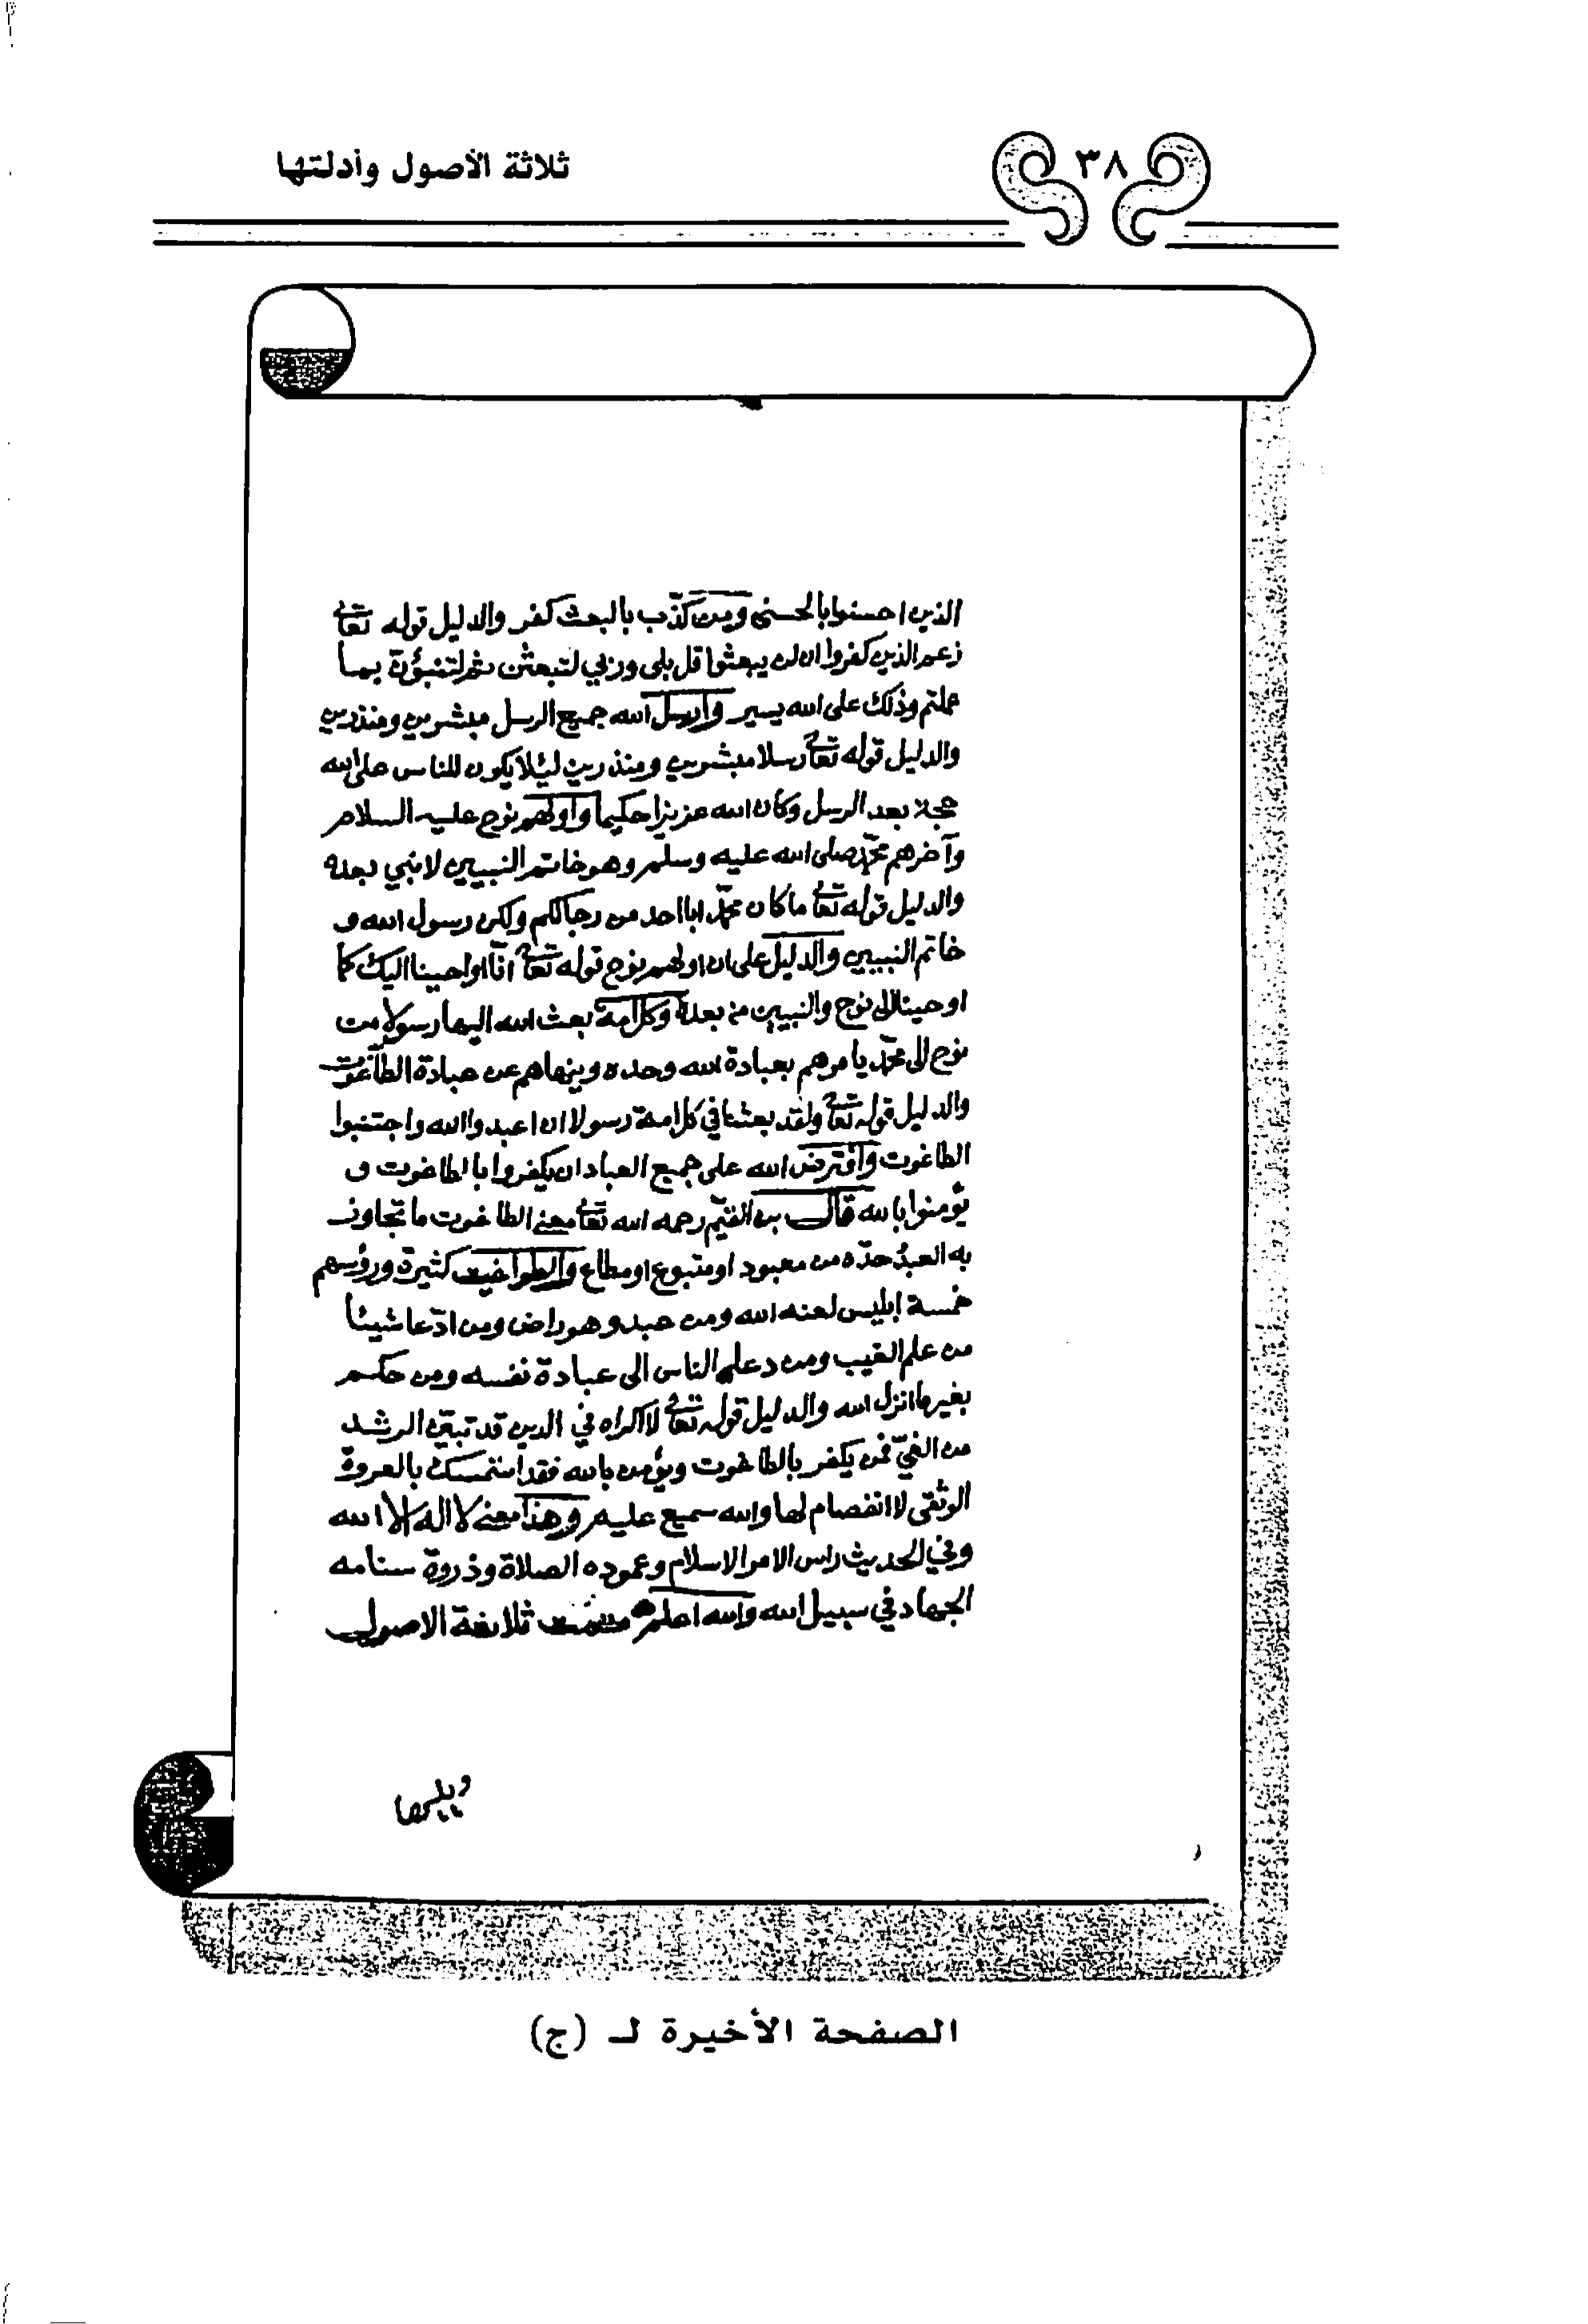 ٣٨
ثلاثة الأصول وأدلتها
الذين احسنوا بالحسنى ومن كذّب بالبعث كفر والدليل قوله تعالى
زعم الذين كفروا ان لن يبعثوا قل بلى وربي لتبعثن ثم لتنبؤن بما
عملتم وذلك على الله يسير وارسل الله جميع الرسل مبشرين ومنذرين
والدليل قوله تعالى رسلا مبشرين ومنذرين ليئلا يكون للناس على الله
حجة بعد الرسل وكان الله عزيزا حكيما واولهم نوح عليه السلام
وآخرهم محمّد صلى الله عليه وسلم وهو خاتم النبيين لا نبي بعده
والدليل قوله تعالى ما كان محمّد ابا احد من رجالكم ولكن رسول الله و
خاتم النبيين والدليل على ان اولهم نوح قوله تعالى انّا اوحينا اليك كما
اوحينا الى نوح والنبيين من بعده وكل امة بعث الله اليها رسولا من
نوح الى محمّد يامرهم بعبادة الله وحده وينهاهم عن عبادة الطاغوت
والدليل قوله تعالى ولقد بعثنا في كل امة رسولا ان اعبدوا الله واجتنبوا
الطاغوت وافترض الله على جميع العباد ان يكفروا بالطاغوت و
يؤمنوا بالله قال بن القيّم رحمه الله تعالى معنى الطاغوت ما تجاوز
به العبدُ حدّه من معبود او متبوع او مطاع والطواغيت كثيرة ورؤسهم
خمسة ابليس لعنه الله ومن عبد وهو راض ومن ادّعا شيئا
من علم الغيب ومن دعا الناس الى عبادة نفسه ومن حكم
بغير ما انزل الله والدليل قوله تعالى لا اكراه في الدين قد تبيّن الرشد
من الغيّ فمن يكفر بالطاغوت ويؤمن بالله فقد استمسك بالعروة
الوثقى لا انفصام لها والله سميع عليم وهذا معنى لا اله الا الله
وفي الحديث راس الامر الاسلام وعموده الصلاة وذروة سنامه
الجهاد في سبيل الله والله اعلم تمت ثلاثة الاصول
ويليها
الصفحة الأخيرة لـ (ج)